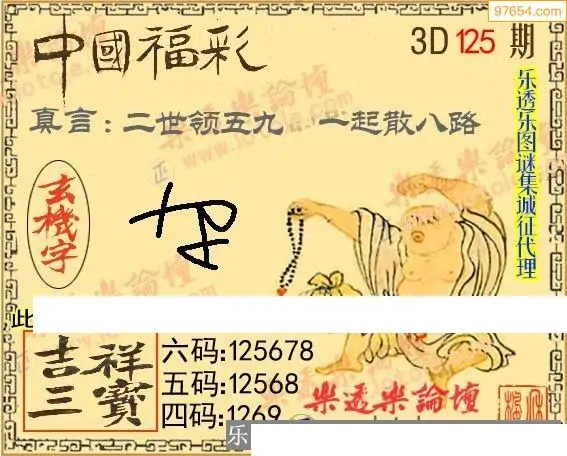 97654.com
中國福彩
3D 125 期
真言:二世领五九 一起散八路
乐透乐图谜集城征代理
玄機字
此
吉祥
三寶
六码:125678
五码:12568
四码:1269
樂透樂論壇
乐